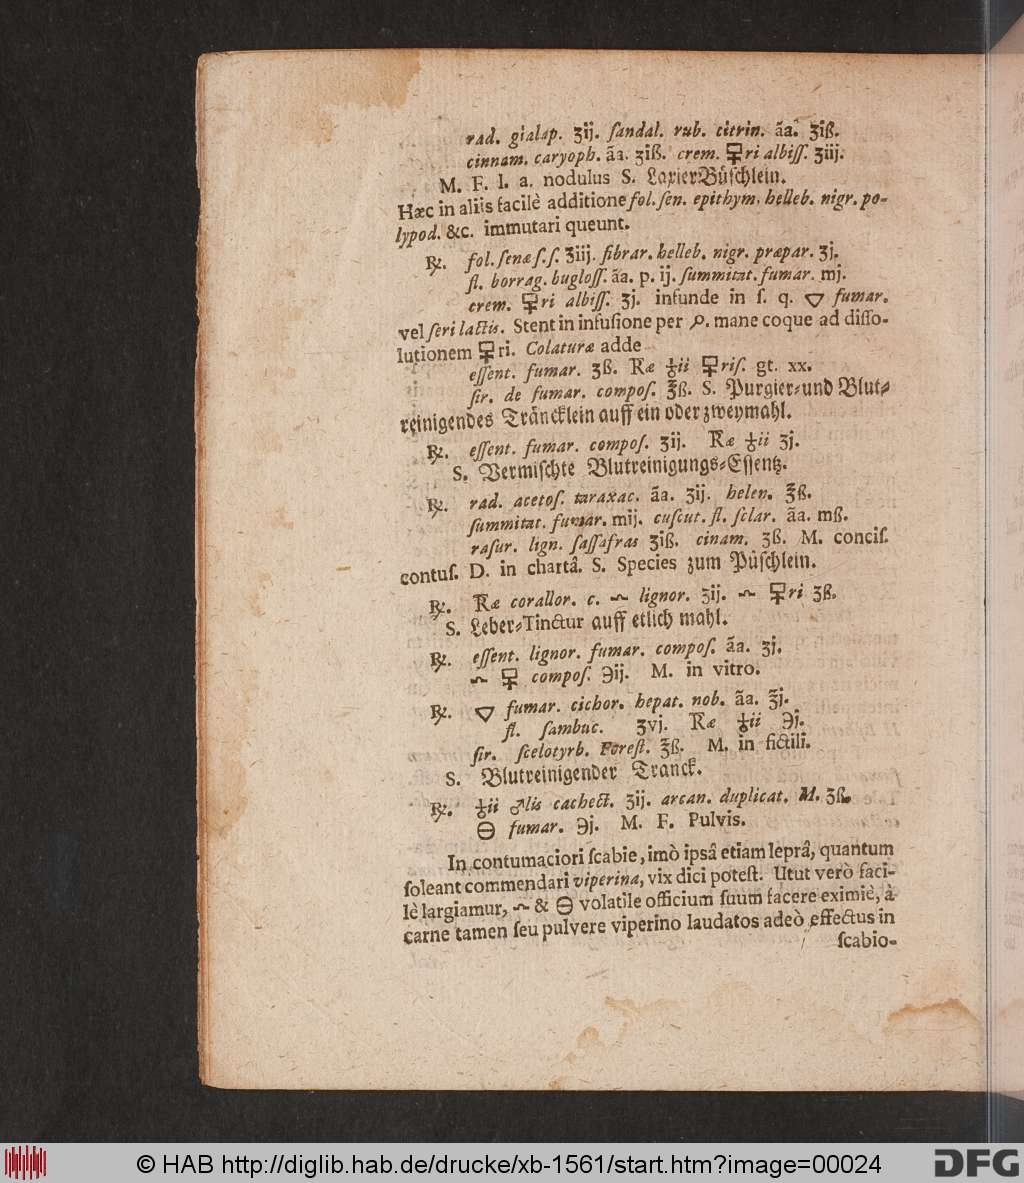 rad. gialap. ʒij. ſandal. rub. citrin. ãa. ʒiß.
cinnam. caryoph. ãa. ʒiß. crem. 🜿ri albiſſ. ʒiij.
M. F. l. a. nodulus S. LaxierBüſchlein.
Hæc in aliis facilè additione fol. ſen. epithym. helleb. nigr. po-
lypod. &c. immutari queunt.
℞. fol. ſenæ ſ. ſ. ʒiij. fibrar. helleb. nigr. præpar. ʒj.
fl. borrag. bugloſſ. ãa. p. ij. ſummitat. fumar. mj.
crem. 🜿ri albiſſ. ʒj. infunde in ſ. q. 🜄 fumar.
vel ſeri lactis. Stent in infuſione per . mane coque ad diſſo-
lutionem 🜿ri. Colaturæ adde
eſſent. fumar. ʒß. Ræ ♁ii 🜿riſ. gt. xx.
ſir. de fumar. compoſ. ℥ß. S. Purgier-und Blut-
reinigendes Träncklein auff ein oder zweymahl.
℞. eſſent. fumar. compoſ. ʒij. Ræ ♁ii ʒj.
S. Vermiſchte Blutreinigungs-Eſſentz.
℞. rad. acetoſ. taraxac. ãa. ʒij. helen. ℥ß.
ſummitat. fumar. mij. cuſcut. fl. ſclar. ãa. mß.
raſur. lign. ſaſſafras ʒiß. cinam. ʒß. M. conciſ.
contuſ. D. in chartâ. S. Species zum Püſchlein.
℞. Ræ corallor. c. 🝞 lignor. ʒij. 🝞 🜿ri ʒß.
S. Leber-Tinctur auff etlich mahl.
℞. eſſent. lignor. fumar. compoſ. ãa. ʒj.
🝞 🜿 compoſ. ℈ij. M. in vitro.
℞. 🜄 fumar. cichor. hepat. nob. ãa. ℥j.
fl. ſambuc. ʒvj. Ræ ♁ii ℈j.
ſir. ſcelotyrb. Foreſt. ℥ß. M. in fictili.
S. Blutreinigender Tranck.
℞. ♁ii ♂lis cachect. ʒij. arcan. duplicat. M. ʒß.
🜔 fumar. ℈j. M. F. Pulvis.
In contumaciori ſcabie, imò ipsâ etiam leprâ, quantum
ſoleant commendari viperina, vix dici poteſt. Utut verò faci-
lè largiamur, 🝞 & 🜔 volatile officium ſuum facere eximiè, à
carne tamen ſeu pulvere viperino laudatos adeò effectus in
ſcabio-
© HAB http://diglib.hab.de/drucke/xb-1561/start.htm?image=00024
DFG